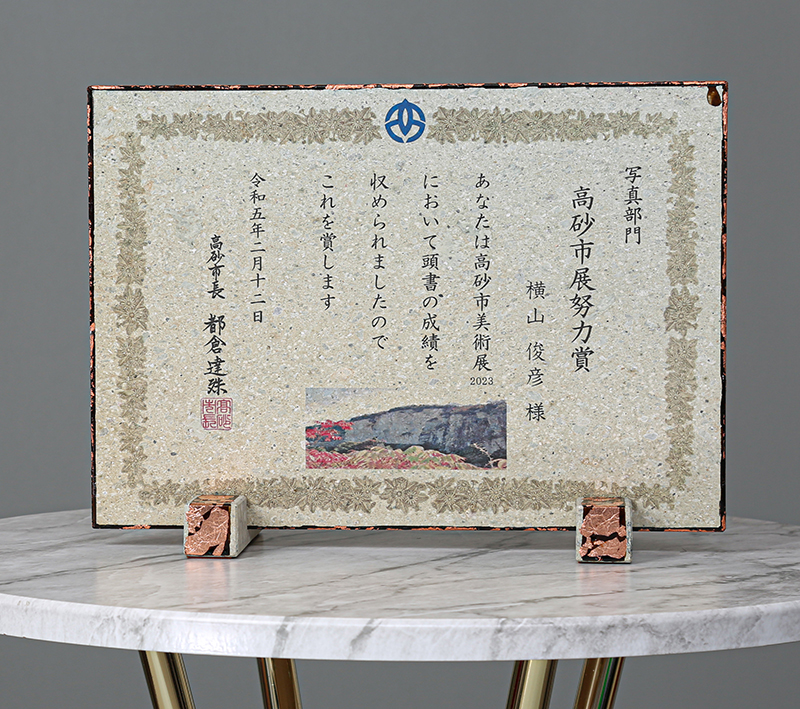 写真部門
高砂市展努力賞
横山 俊彦 様
あなたは高砂市美術展
2023
において頭書の成績を
収められましたので
これを賞します
令和五年二月十二日
高砂市長 都倉達殊
高砂市長